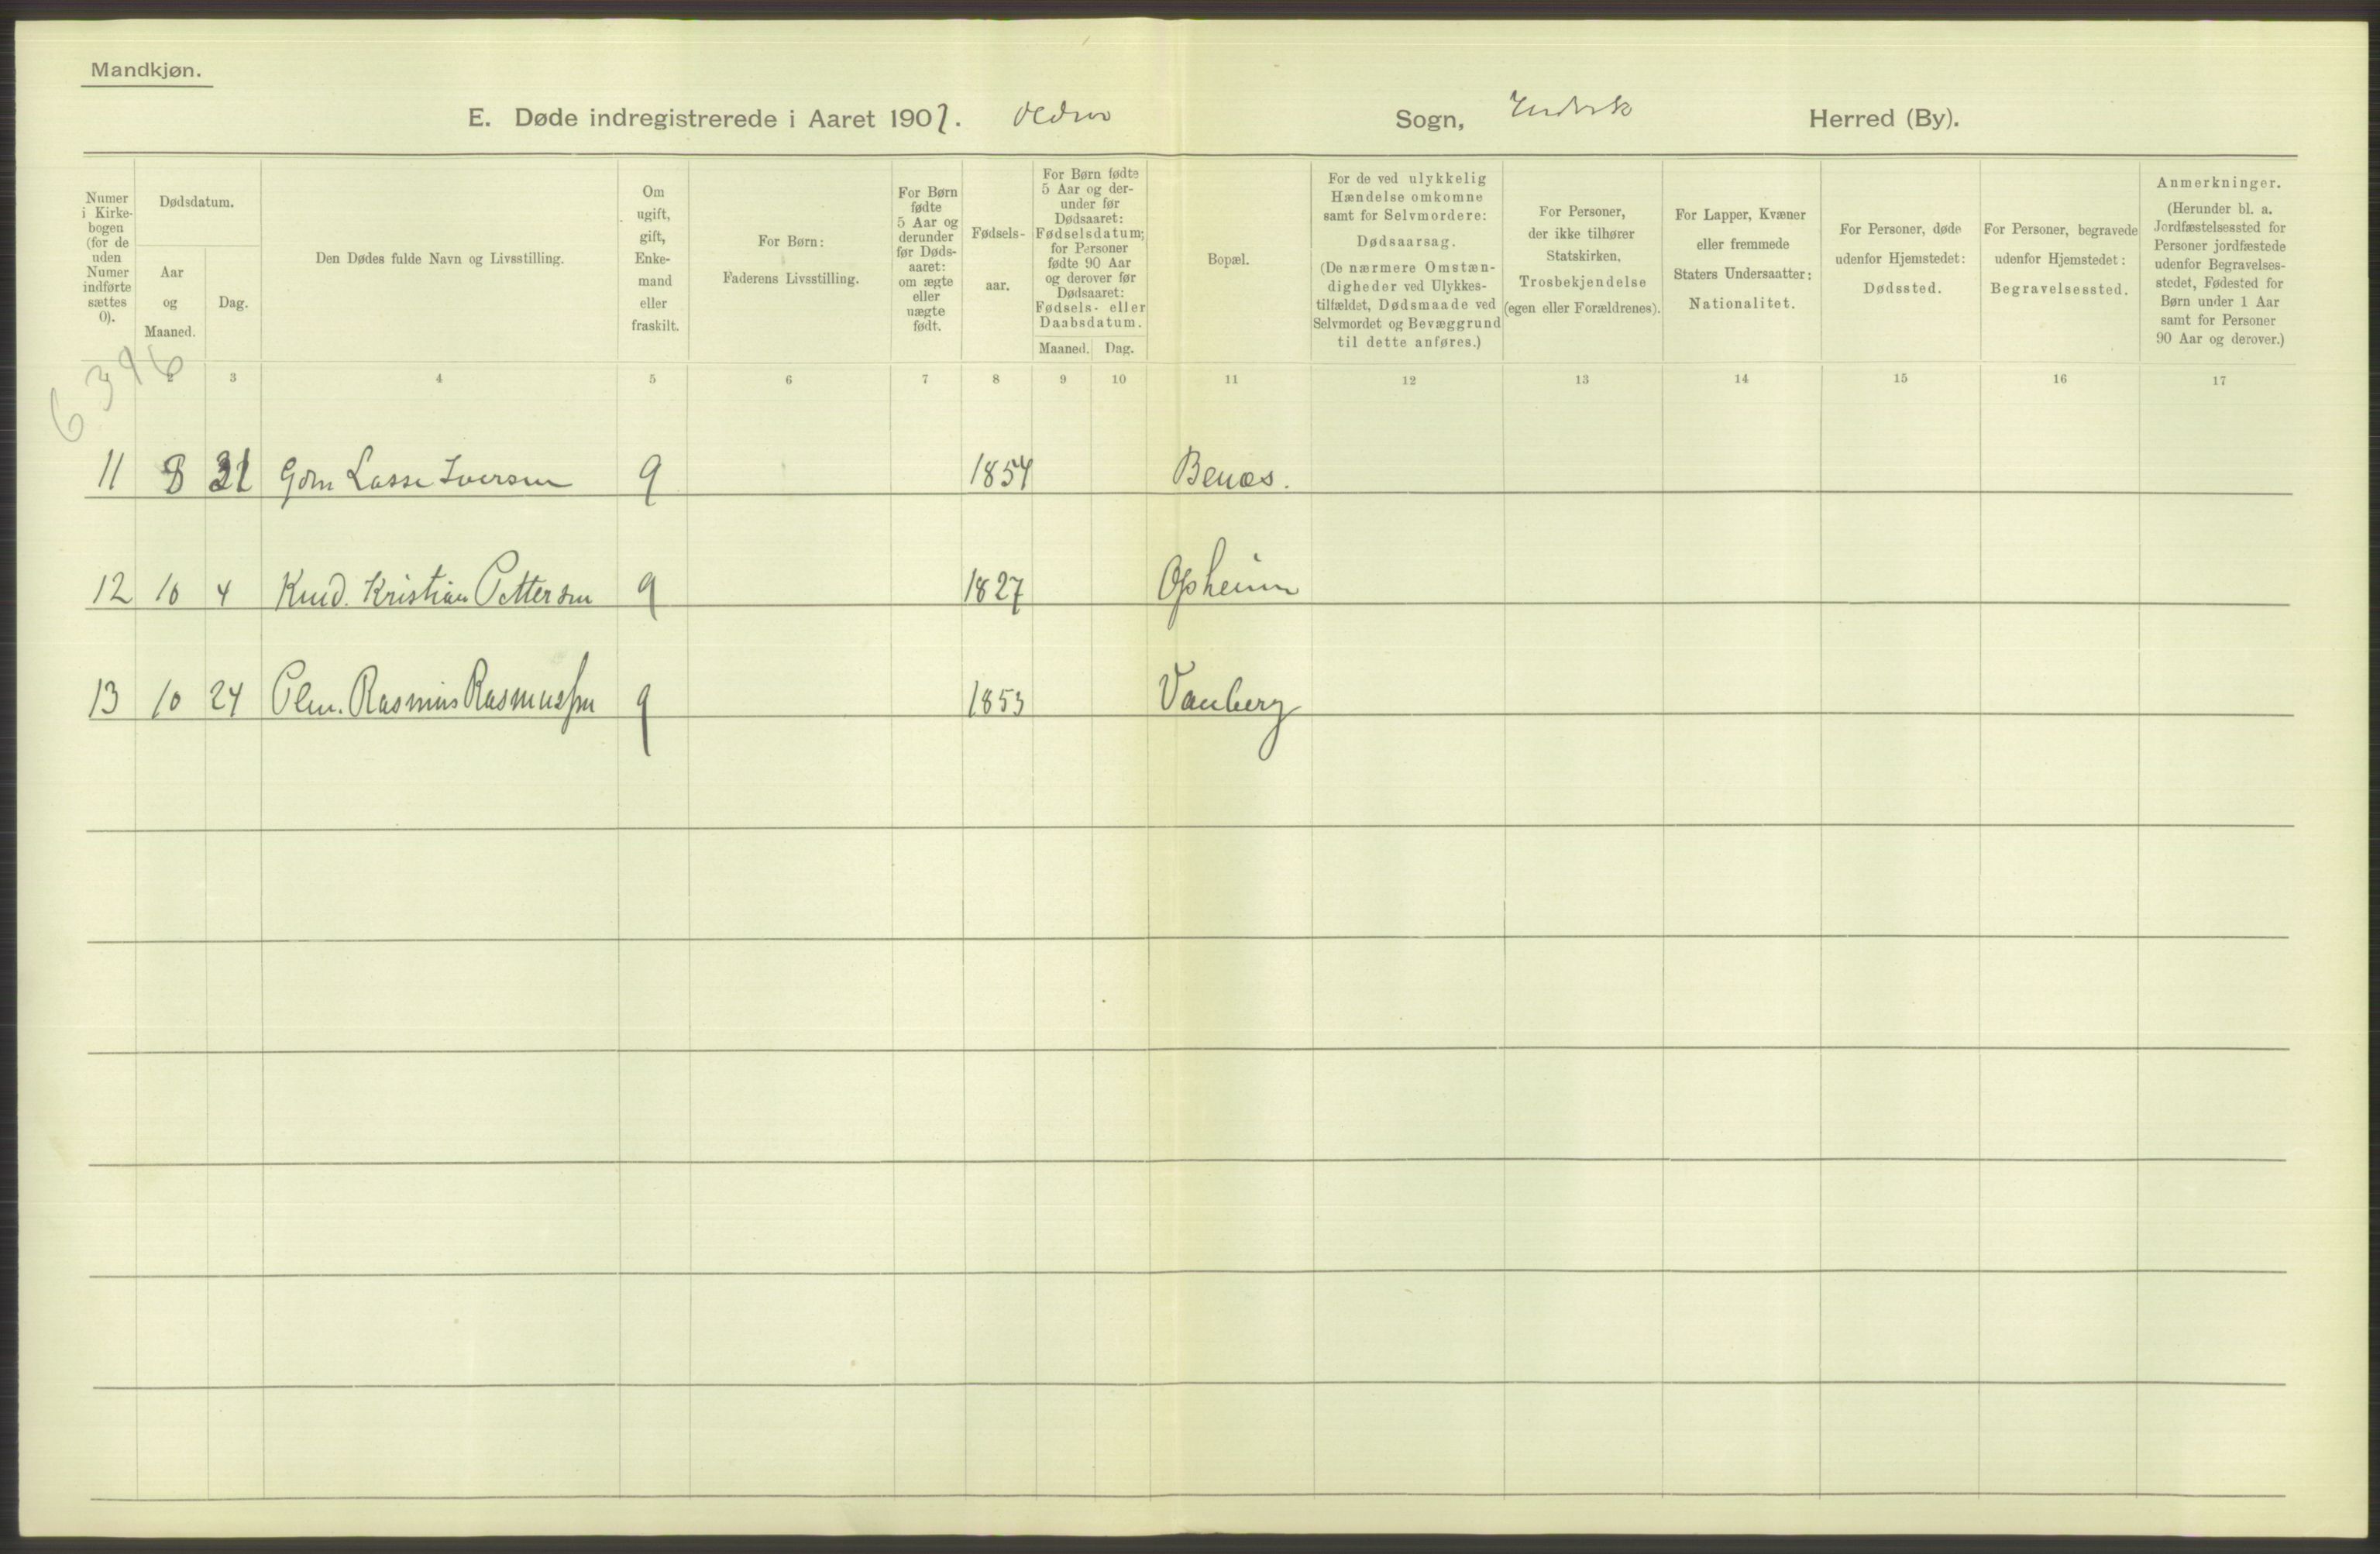 Mandkjøn.
E. Døde indregistrerede i Aaret 1902. Olden Sogn, Herred (By).
Numer
i Kirke-
bogen
(for de
uden
Numer
indførte
sættes
0).
Dødsdatum.
Aar
og
Maaned.
Dag.
Den Dødes fulde Navn og Livsstilling.
Om
ugift,
gift,
Enke-
mand
eller
fraskilt.
For Børn:
Faderens Livsstilling.
For Børn
fødte
5 Aar og
derunder
før Døds-
aaret:
om ægte
eller
uægte
født.
Fødsels-
aar.
For Børn fødte
5 Aar og der-
under før
Dødsaaret:
Fødselsdatum;
for Personer
fødte 90 Aar
og derover før
Dødsaaret:
Fødsels- eller
Daabsdatum.
Maaned. Dag.
Bopæl.
For de ved ulykkelig
Hændelse omkomne
samt for Selvmordere:
Dødsaarsag.
(De nærmere Omstæn-
digheder ved Ulykkes-
tilfældet, Dødsmaade ved
Selvmordet og Bevæggrund
til dette anføres.)
For Personer,
der ikke tilhører
Statskirken,
Trosbekjendelse
(egen eller Forældrenes).
For Lapper, Kvæner
eller fremmede
Staters Undersaatter:
Nationalitet.
For Personer, døde
udenfor Hjemstedet:
Dødssted.
For Personer, begravede
udenfor Hjemstedet:
Begravelsessted.
Anmerkninger.
(Herunder bl. a.
Jordfæstelsessted for
Personer jordfæstede
udenfor Begravelses-
stedet, Fødested for
Børn under 1 Aar
samt for Personer
90 Aar og derover.)
6396
2 3 4 5 6 7 8 9 10 11 12 13 14 15 16 17
11 8 31 Gdm Lasse Iversen g 1854 Benæs.
12 10 4 Knud. Kristian Pettersen g 1827 Opheim
13 10 24 Rasmus Rasmussen g 1853 Vanberg